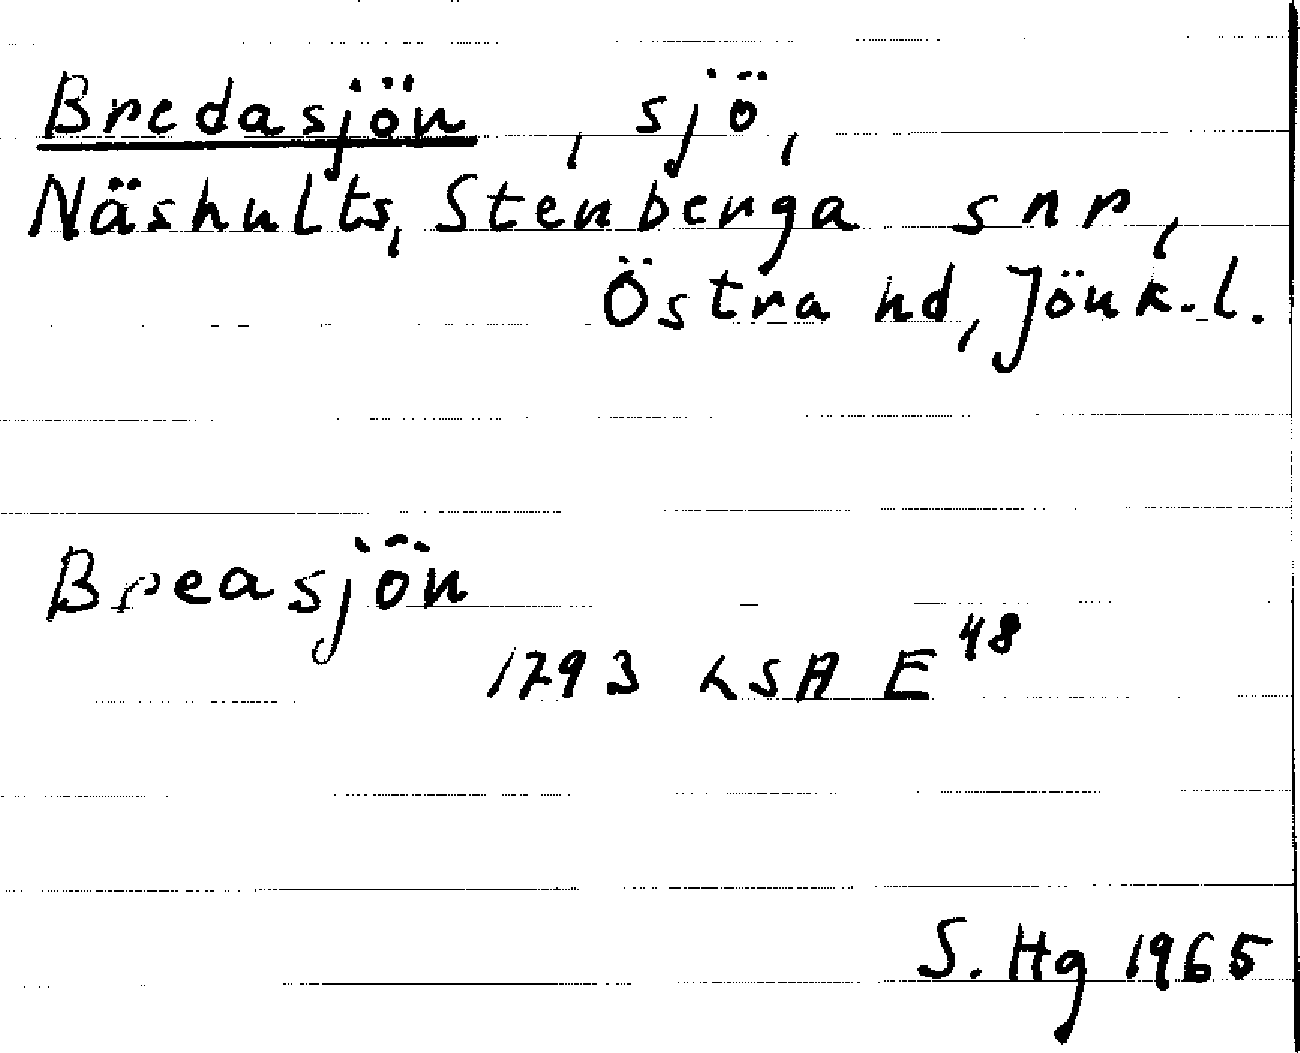 Bredasjön, sjö,
Näshults, Stenberga snr,
Östra hd, Jönk.l.
Breasjön
1793 LSA E 48
S. Hg 1965